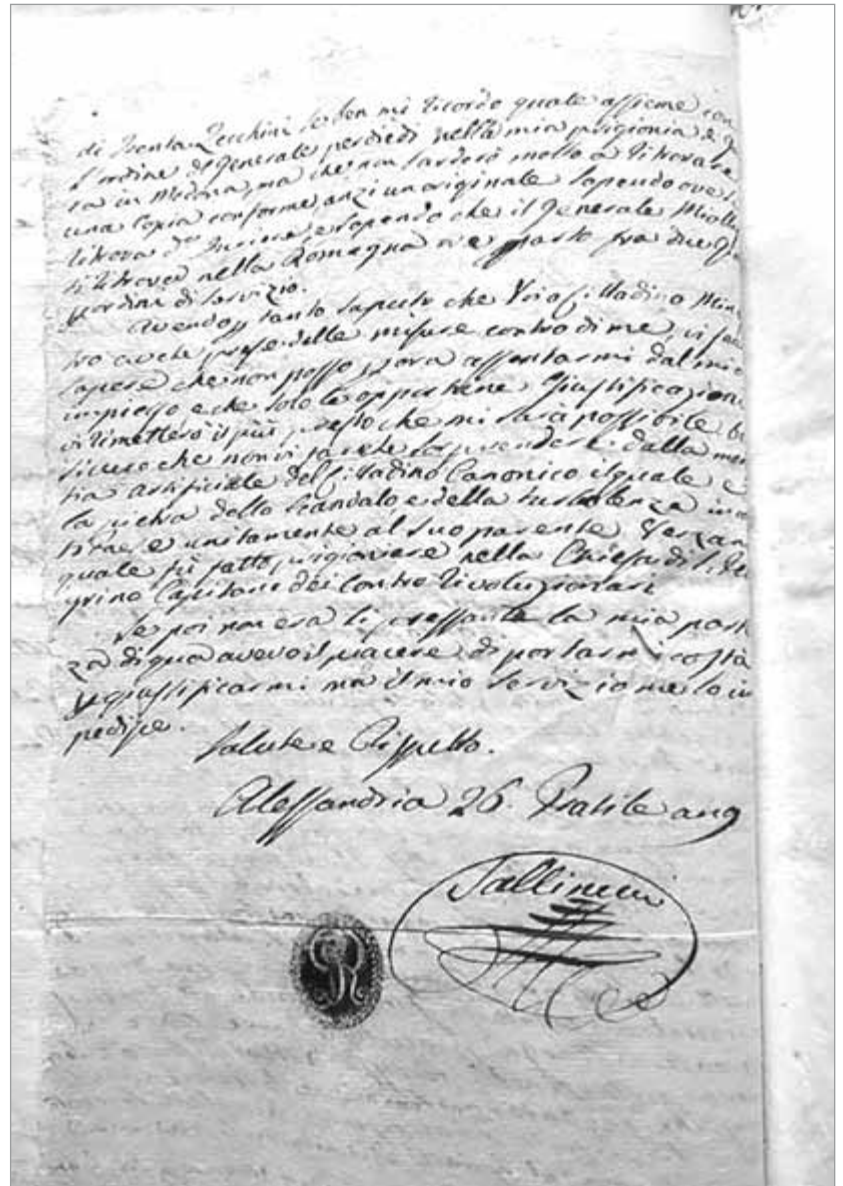 di trenta Zecchini se ben mi ricordo quale assieme con
l'ordine del Generale perdiedi nella mia prigionia e
ra in Modena, ma che non tarderò molto a ritrovare
una Copia conforme anzi un originale sapendo ove
ritrova e sapendo che il Generale Mioll
si ritrova nella Romagna ove parto fra due
ordine di servizio.
Avendo tanto saputo che Voi Cittadino Mini
tro avete prese delle misure contro di me, vi facc
sapere che non posso ora assentarmi dal mio
impiego e che solo le opportune Giustificazioni
vi rimetterò il più presto che mi sarà possibile
sicuro che non vi farete sorprendere dalla
artificiale del Cittadino Canonico, il quale e
la pietra dello Scandalo e della turbolenza in
e unitamente al suo parente
quale fu fatto prigioniere nella Chiesa di
grino Capitano dei Contro rivoluzionari
Se poi non era si pressante la mia parte
za di qua avevo il piacere di portarmi costà
giustificarmi ma il mio Servizio me lo im
pedisce.
Salute e Rispetto.
Alessandria 26. Pratile
Tallinucci
GR